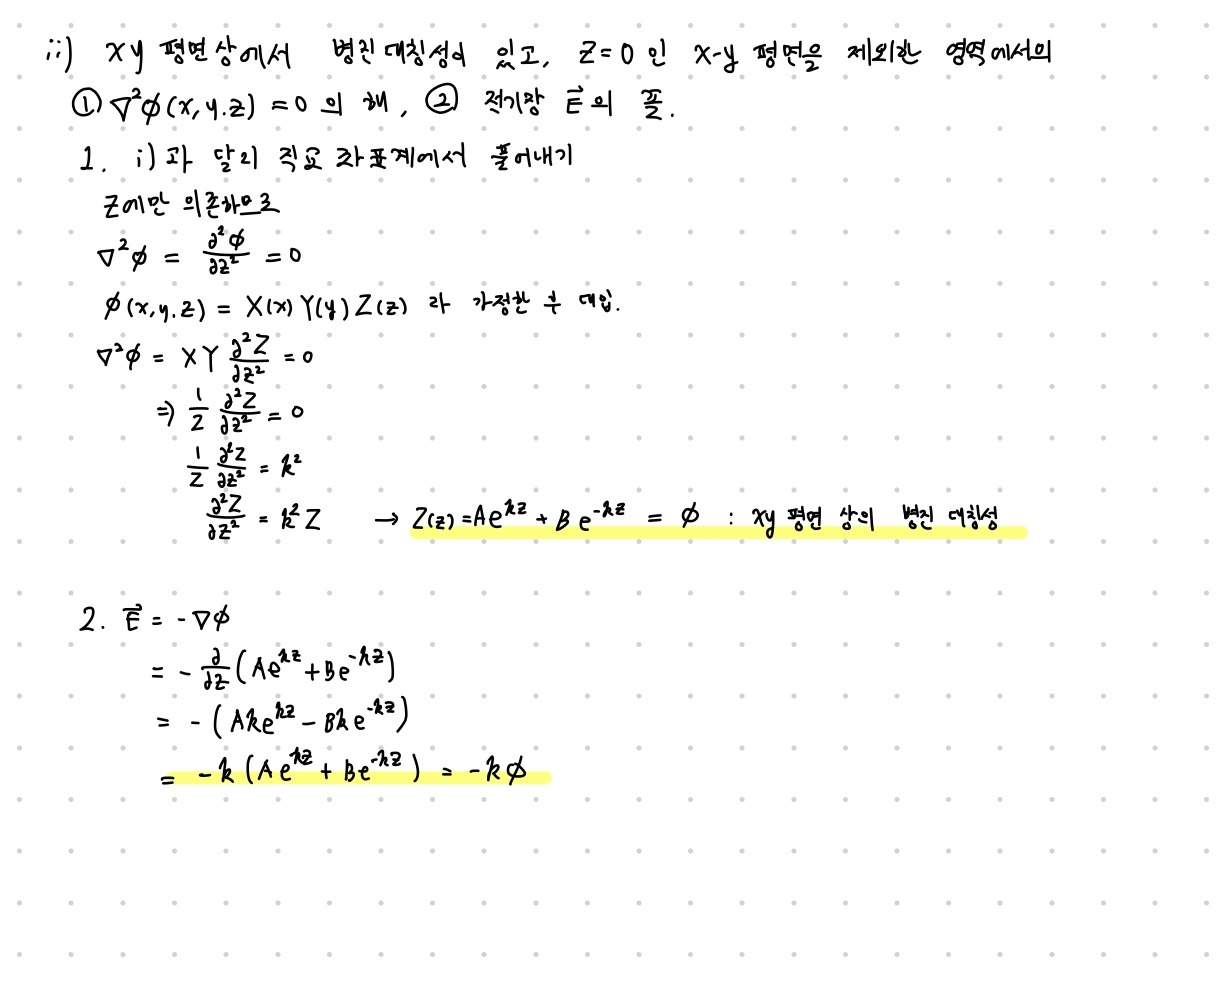 ii) xy 평면상에서 병진 대칭성이 있고, z=0 인 x-y 평면을 제외한 영역에서의
① ∇²φ(x,y,z) = 0 의 해, ② 전기장 E⃗ 의 꼴.
1. i)과 달리 직교 좌표계에서 풀어내기
z에만 의존하므로
∇²φ = ∂²φ/∂z² = 0
φ(x,y,z) = X(x)Y(y)Z(z) 라 가정한 후 대입.
∇²φ = XY ∂²Z/∂z² = 0
⇒ 1/Z ∂²Z/∂z² = 0
1/Z ∂²Z/∂z² = k²
∂²Z/∂z² = k²Z → Z(z) = Ae^{kz} + Be^{-kz} = φ : xy 평면 상의 병진 대칭성
2. E⃗ = -∇φ
= -∂/∂z (Ae^{kz} + Be^{-kz})
= -(Ake^{kz} - Bke^{-kz})
= -k(Ae^{kz} + Be^{-kz}) = -kφ